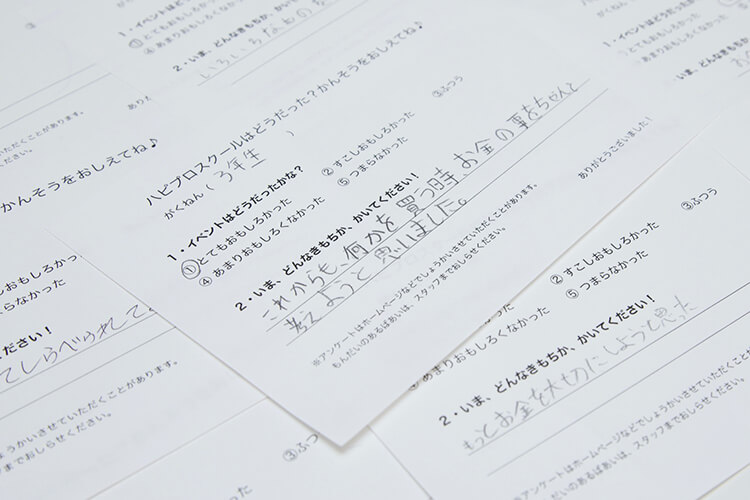 1・イベントはどう
①とてもおもしろかった
④あまりおもしろく
2・いま、どんな
いろいろなもの
ありが
くことがあります。
ださい。
かんそうをおしえてね♪
ハピプロスクールはどうだった?かんそうをおしえてね♪
がくねん( 3年生 )
1・イベントはどうだったかな?
①とてもおもしろかった
②すこしおもしろかった
③ふつう
④あまりおもしろくなかった
⑤つまらなかった
2・いま、どんなきもちか、かいてください!
これからも、何かを買う時、お金の事をちゃんと
考えようと思いました。
ありがとうございました!
※アンケートはホームページなどでしょうかいさせていただくことがあります。
もんだいのあるばあいは、スタッフまでおしらせください。
しろかった
まらなかった
③ふつう
ださい!
てしらべられて
ょうかいさせていただくことがあります。
フまでおしらせください。
③ふつう
②すこしおもしろかった
⑤つまらなかった
④あまりおもしろくなかった
2・いま、どんなきもちか、かいてください!
もっとお金を大切にしようと思った
※アンケートはホームページなどでしょうかいさせていただくことが